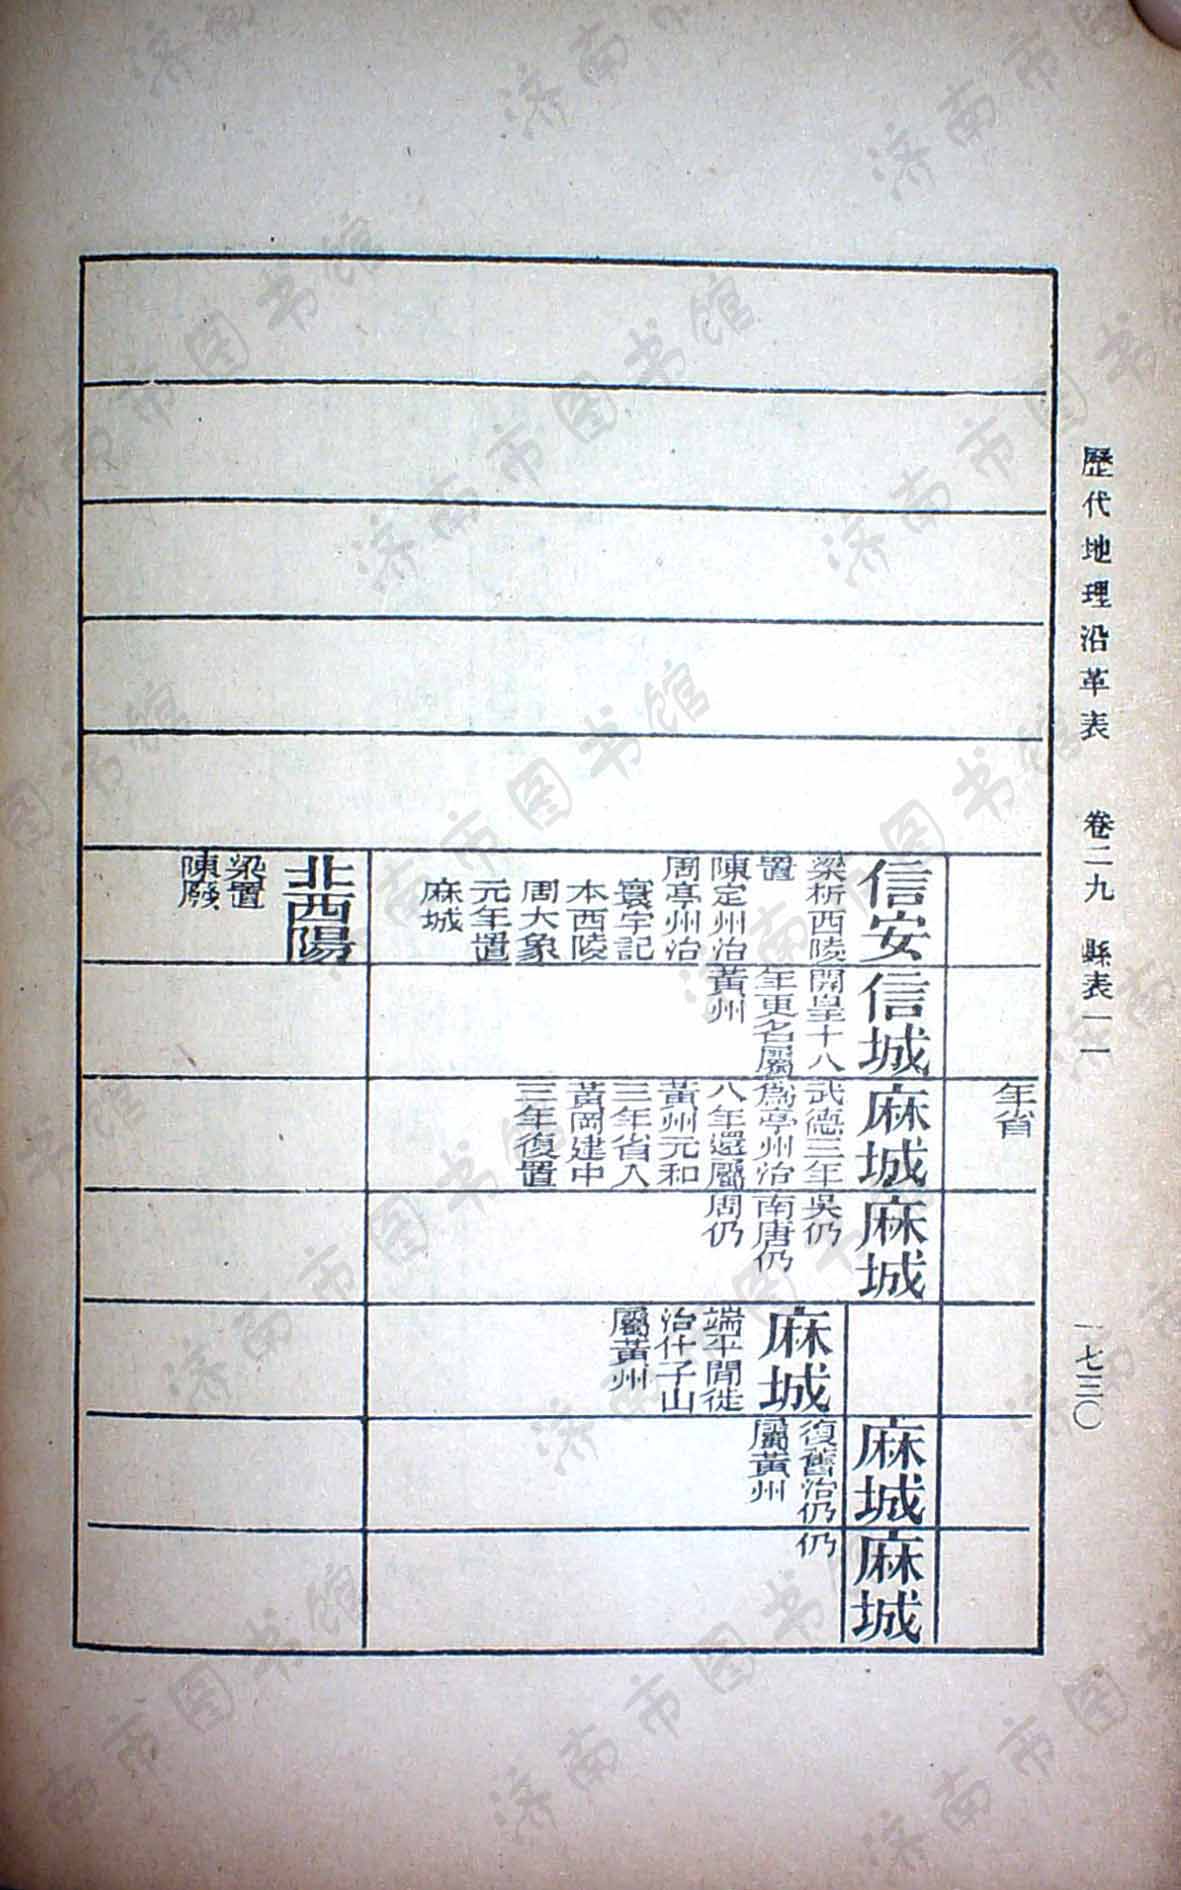 歷代地理沿革表 卷二九 縣表一一 一七三〇
年省
信安
梁析西陵
置
陳定州治
周亭州治
寰宇記
本西陵
周大象
元年置
麻城
信城
開皇十八
年更名屬
黃州
麻城
武德三年
爲亭州治
八年還屬
黃州元和
三年省入
黃岡建中
三年復置
麻城
吳仍
南唐仍
周仍
麻城
端平閒徙
治什子山
屬黃州
麻城
復舊治仍
屬黃州
麻城
仍
北西陽
梁置
陳廢
济南市图书馆